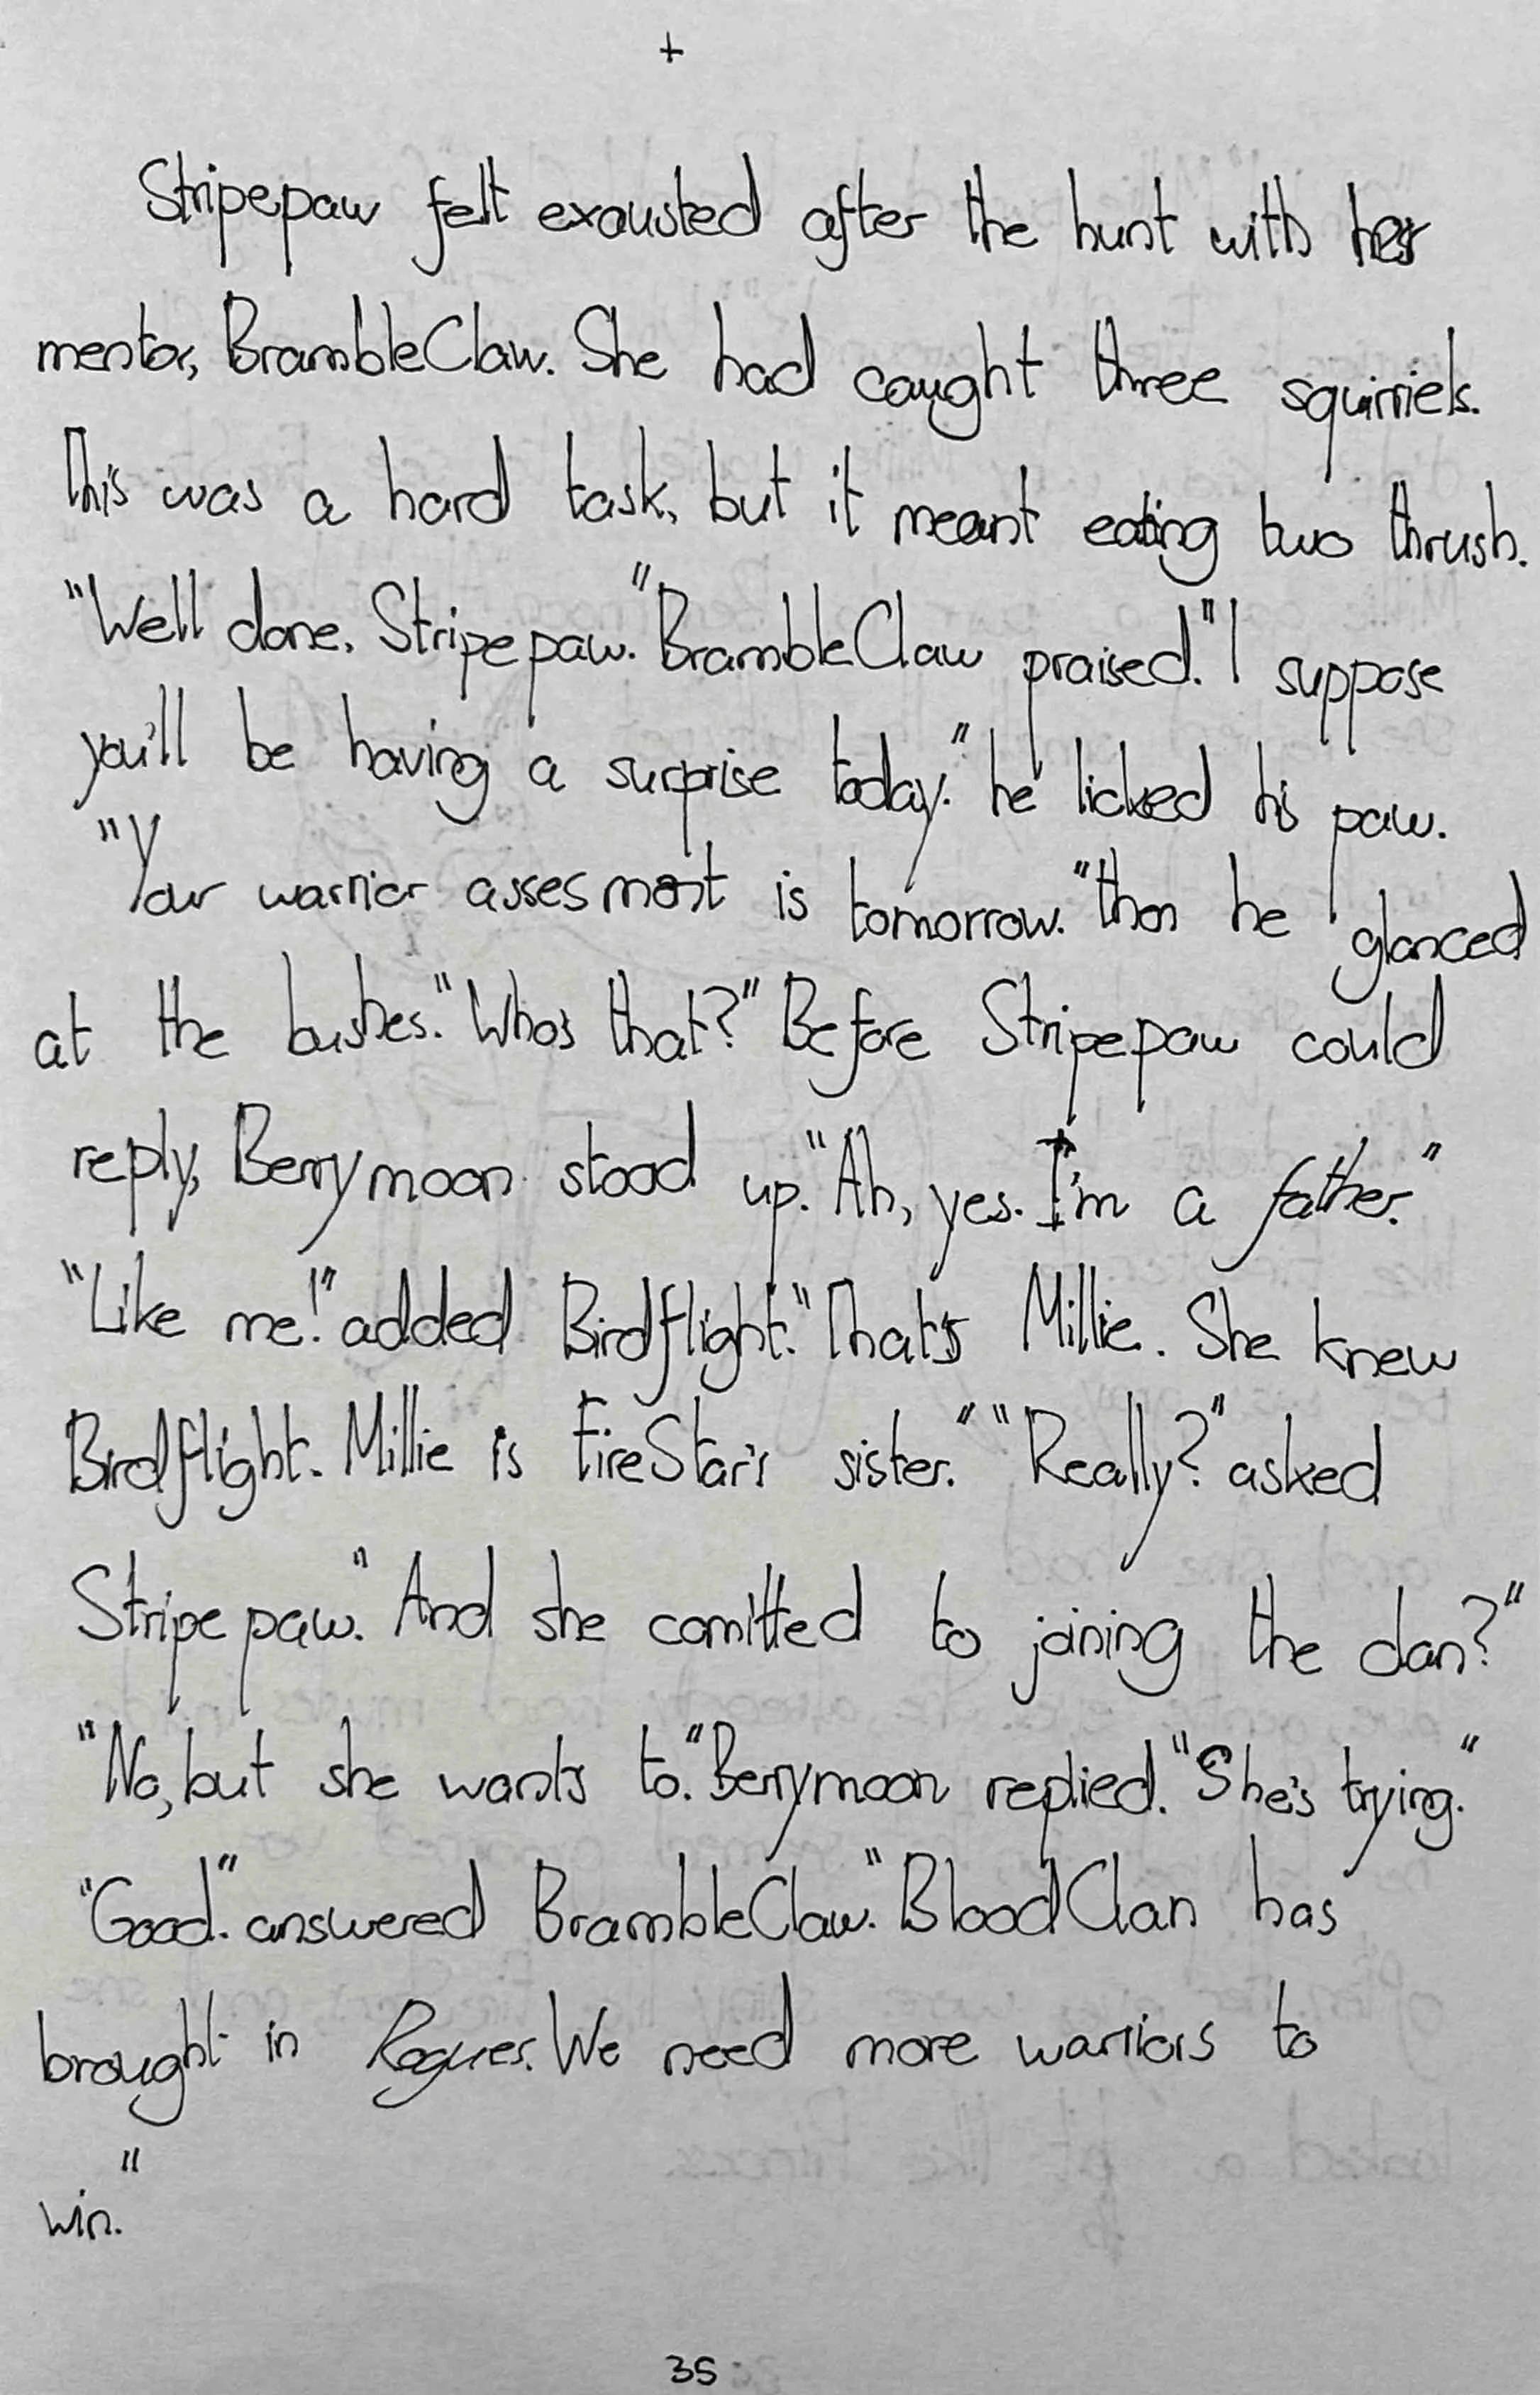 +
Stripepaw felt exausted after the hunt with her
mentor, BrambleClaw. She had caught three squirriels.
This was a hard task, but it meant eating two thrush.
"Well done, Stripepaw." BrambleClaw praised. "I suppose
you'll be having a surprise today." he licked his paw.
"Your warrior assesment is tomorrow." then he glanced
at the bushes. "Who's that?" Before Stripepaw could
reply, Berrymoon stood up. "Ah, yes. I'm a father."
"Like me!" added Birdflight. "That's Millie. She knew
Birdflight. Millie is FireStar's sister." "Really?" asked
Stripepaw. "And she comitted to joining the clan?"
"No, but she wants to." Berrymoon replied. "She's trying."
"Good." answered BrambleClaw. "BloodClan has
brought in Rogues. We need more warriors to
win."
35